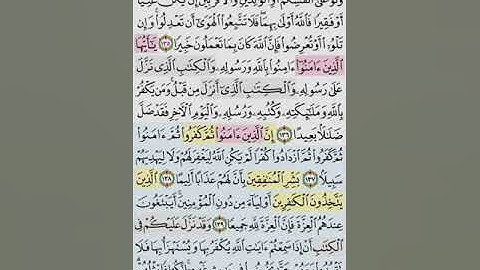 وَلَوْ عَلَىٰٓ أَنفُسِكُمْ أَوِ ٱلْوَٰلِدَيْنِ وَٱلْأَقْرَبِينَ إِن يَكُنْ غَنِيًّا
أَوْ فَقِيرًا فَٱللَّهُ أَوْلَىٰ بِهِمَا فَلَا تَتَّبِعُوا۟ ٱلْهَوَىٰٓ أَن تَعْدِلُوا۟ وَإِن
تَلْوُۥٓا۟ أَوْ تُعْرِضُوا۟ فَإِنَّ ٱللَّهَ كَانَ بِمَا تَعْمَلُونَ خَبِيرًا ١٣٥ يَٰٓأَيُّهَا
ٱلَّذِينَ ءَامَنُوٓا۟ ءَامِنُوا۟ بِٱللَّهِ وَرَسُولِهِۦ وَٱلْكِتَٰبِ ٱلَّذِى نَزَّلَ
عَلَىٰ رَسُولِهِۦ وَٱلْكِتَٰبِ ٱلَّذِىٓ أَنزَلَ مِن قَبْلُ وَمَن يَكْفُرْ
بِٱللَّهِ وَمَلَٰٓئِكَتِهِۦ وَكُتُبِهِۦ وَرُسُلِهِۦ وَٱلْيَوْمِ ٱلْءَاخِرِ فَقَدْ ضَلَّ
ضَلَٰلًۢا بَعِيدًا ١٣٦ إِنَّ ٱلَّذِينَ ءَامَنُوا۟ ثُمَّ كَفَرُوا۟ ثُمَّ ءَامَنُوا۟
ثُمَّ كَفَرُوا۟ ثُمَّ ٱزْدَادُوا۟ كُفْرًا لَّمْ يَكُنِ ٱللَّهُ لِيَغْفِرَ لَهُمْ وَلَا لِيَهْدِيَهُمْ
سَبِيلًۢا ١٣٧ بَشِّرِ ٱلْمُنَٰفِقِينَ بِأَنَّ لَهُمْ عَذَابًا أَلِيمًا ١٣٨ ٱلَّذِينَ
يَتَّخِذُونَ ٱلْكَٰفِرِينَ أَوْلِيَآءَ مِن دُونِ ٱلْمُؤْمِنِينَ أَيَبْتَغُونَ
عِندَهُمُ ٱلْعِزَّةَ فَإِنَّ ٱلْعِزَّةَ لِلَّهِ جَمِيعًا ١٣٩ وَقَدْ نَزَّلَ عَلَيْكُمْ فِى
ٱلْكِتَٰبِ أَنْ إِذَا سَمِعْتُمْ ءَايَٰتِ ٱللَّهِ يُكْفَرُ بِهَا وَيُسْتَهْزَأُ بِهَا فَلَا